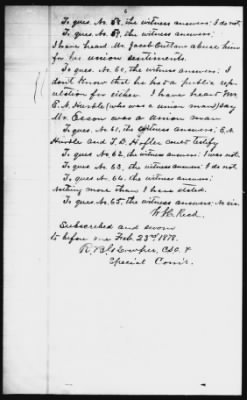 6
To ques. No. 58, the witness answers; I do not.
To ques. No. 59, the witness answers:
I have heard Mr. Jacob abuse him
for his union sentiments.
To ques. No. 60, the witness answers; I
don't know that he has a public rep-
utation for either. I have heard Mr.
E. A. (who was a union man) say
Mr. was a union man
To ques. No. 61, the witness answers; E. A.
and T. D. could testify
To ques. No. 62, the witness answers: I was not.
To ques. No. 63, the witness answers: I do not
To ques. No. 64, the witness answers:
nothing more than I have stated.
To ques. No. 65, the witness answers; No sir.
Reed
Subscribed and sworn
to before me Feb. 23rd 1878.
Special Com'r.